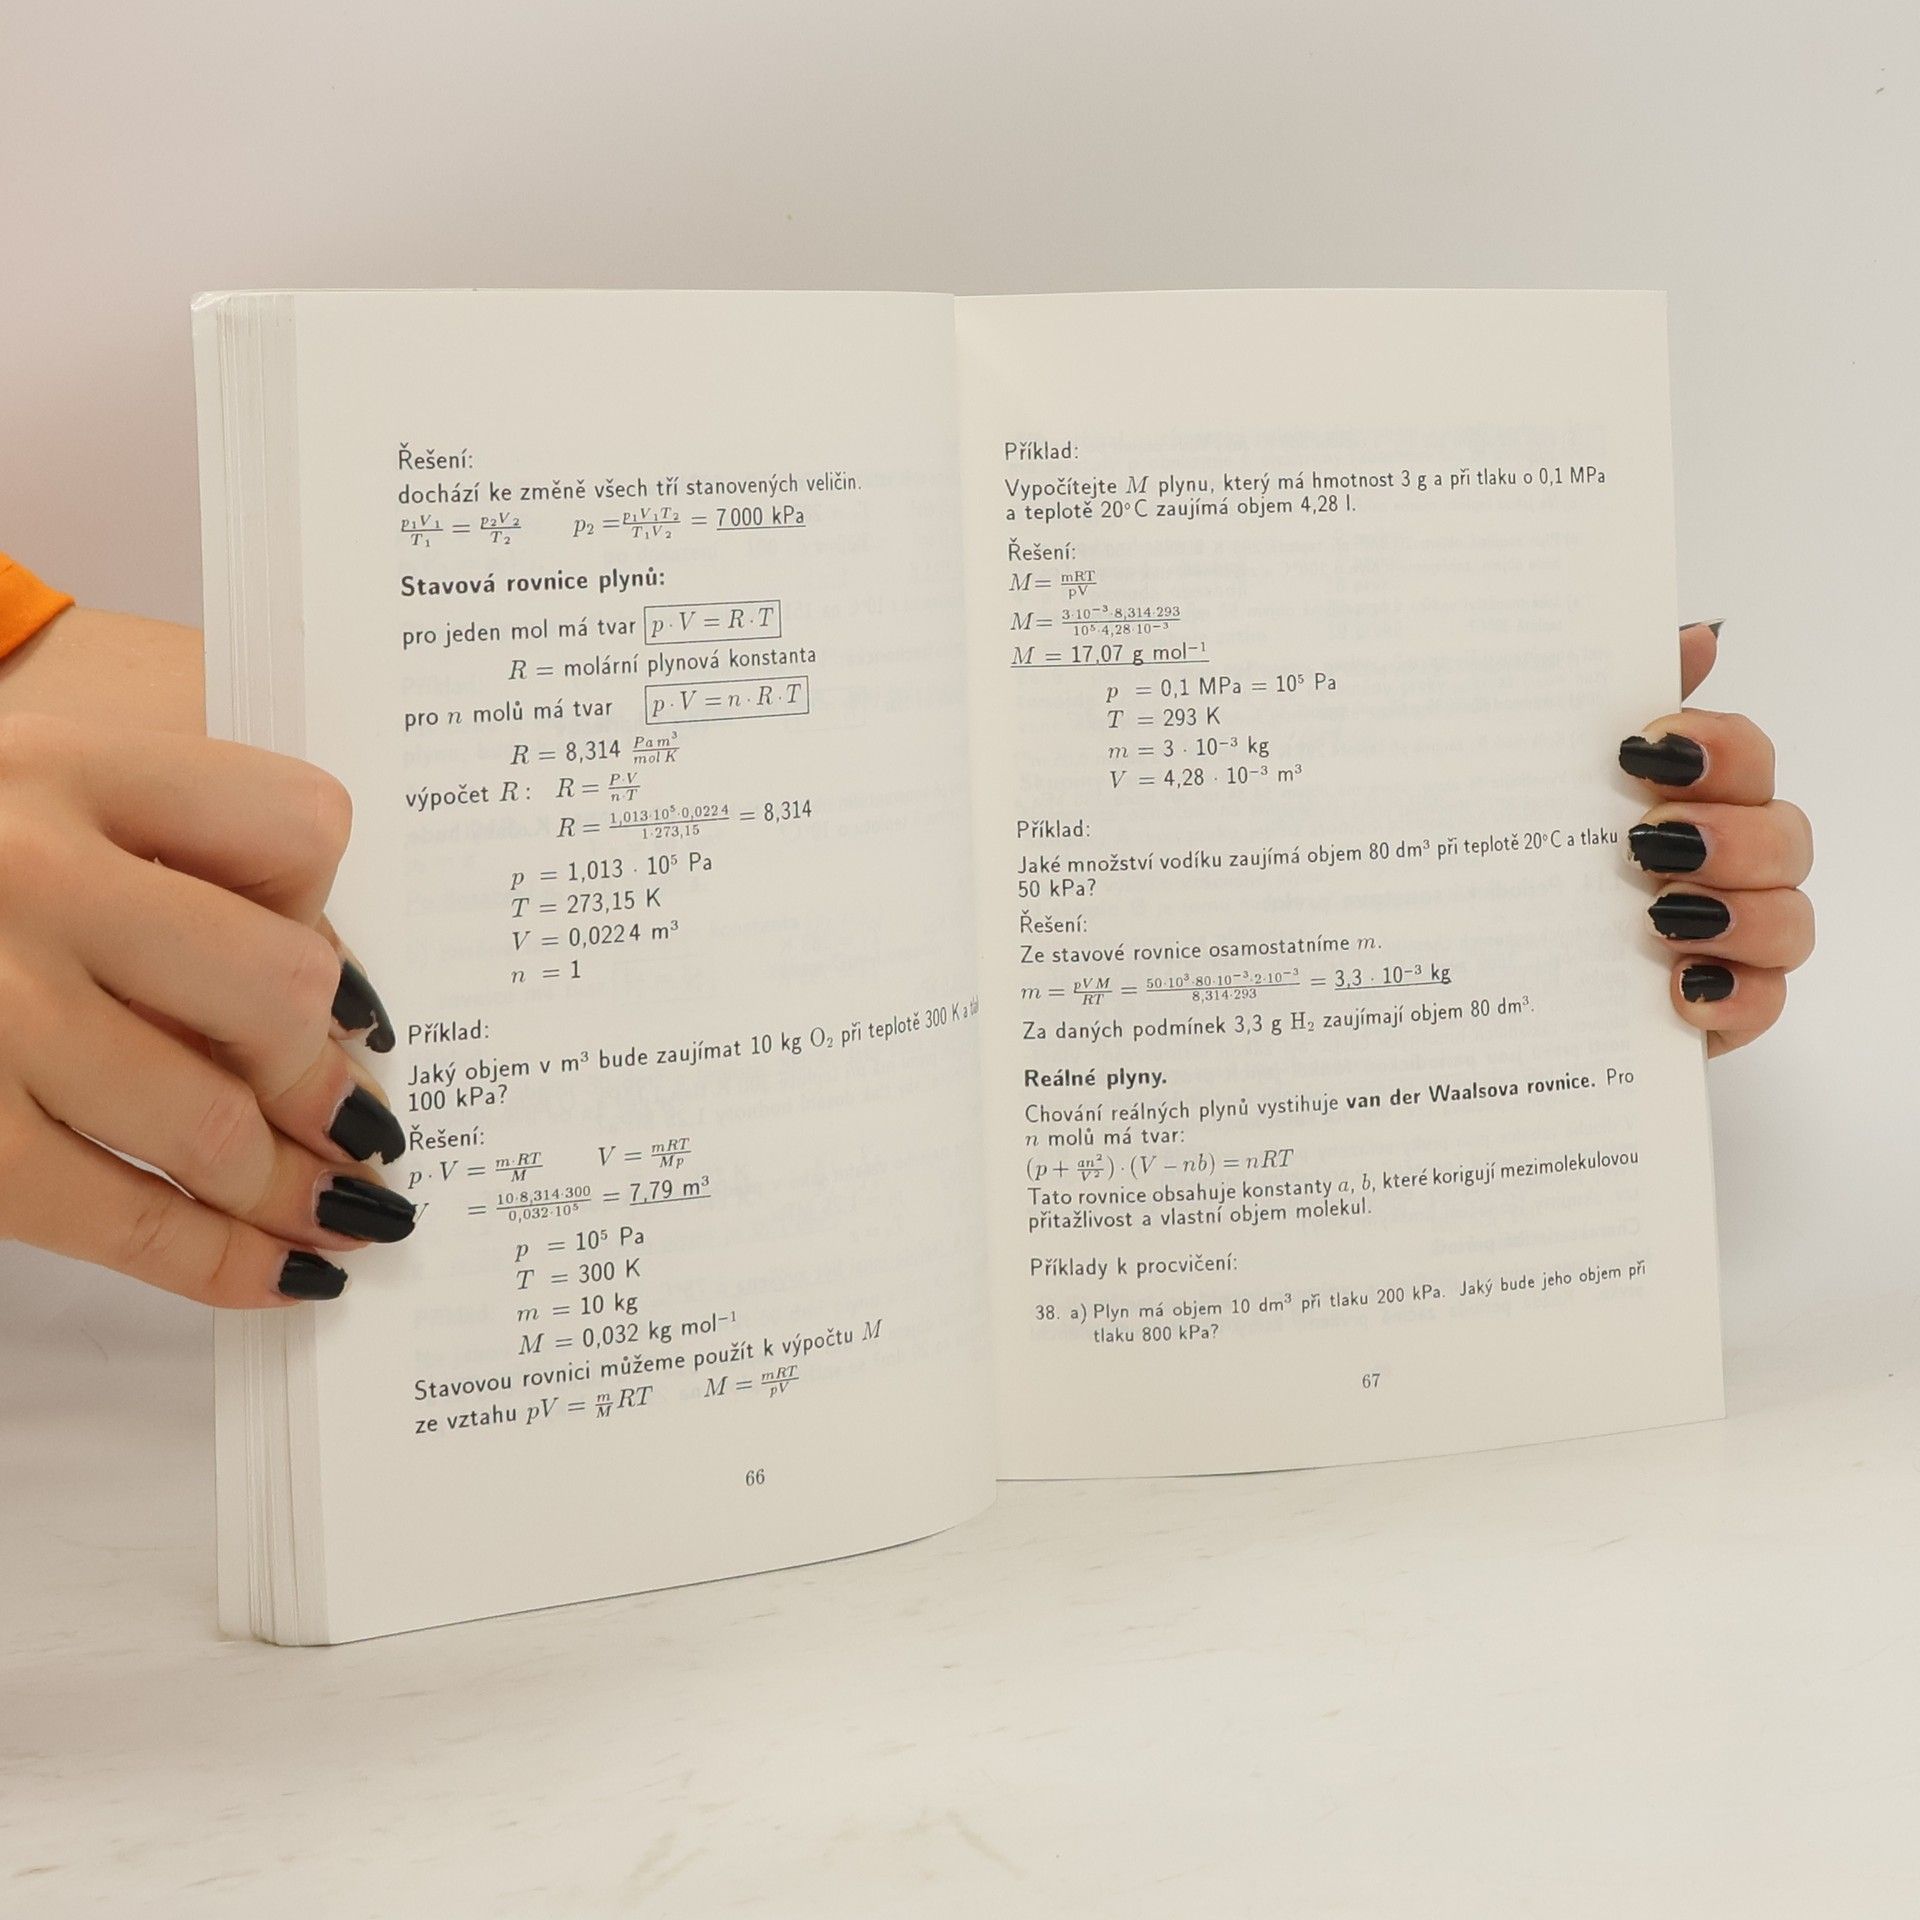 Řešení:
dochází ke změně všech tří stanovených veličin.
p₁V₁/T₁ = p₂V₂/T₂ p₂ = p₁V₁T₂/T₁V₂ = 7 000 kPa
Stavová rovnice plynů:
pro jeden mol má tvar p · V = R · T
R = molární plynová konstanta
pro n molů má tvar p · V = n · R · T
R = 8,314 Pa m³/mol K
výpočet R: R = P·V/n·T
R = 1,013·10⁵·0,0224/1·273,15 = 8,314
p = 1,013 · 10⁵ Pa
T = 273,15 K
V = 0,0224 m³
n = 1
Příklad:
Jaký objem v m³ bude zaujímat 10 kg O₂ při teplotě 300 K a
100 kPa?
Řešení:
p · V = m·RT/M V = mRT/Mp
V = 10·8,314·300/0,032·10⁵ = 7,79 m³
p = 10⁵ Pa
T = 300 K
m = 10 kg
M = 0,032 kg mol⁻¹
Stavovou rovnici můžeme použít k výpočtu M
ze vztahu pV = m/M RT M = mRT/pV
66
Příklad:
Vypočítejte M plynu, který má hmotnost 3 g a při tlaku o 0,1 MPa
a teplotě 20°C zaujímá objem 4,28 l.
Řešení:
M= mRT/pV
M= 3·10⁻³·8,314·293/10⁵·4,28·10⁻³
M = 17,07 g mol⁻¹
p = 0,1 MPa = 10⁵ Pa
T = 293 K
m = 3 · 10⁻³ kg
V = 4,28 · 10⁻³ m³
Příklad:
Jaké množství vodíku zaujímá objem 80 dm³ při teplotě 20°C a tlaku
50 kPa?
Řešení:
Ze stavové rovnice osamostatníme m.
m = pVM/RT = 50·10³·80·10⁻³·2·10⁻³/8,314·293 = 3,3 · 10⁻³ kg
Za daných podmínek 3,3 g H₂ zaujímají objem 80 dm³.
Reálné plyny.
Chování reálných plynů vystihuje van der Waalsova rovnice. Pro
n molů má tvar:
(p + an²/V²) · (V − nb) = nRT
Tato rovnice obsahuje konstanty a, b, které korigují mezimolekulovou
přitažlivost a vlastní objem molekul.
Příklady k procvičení:
38. a) Plyn má objem 10 dm³ při tlaku 200 kPa. Jaký bude jeho objem při
tlaku 800 kPa?
67